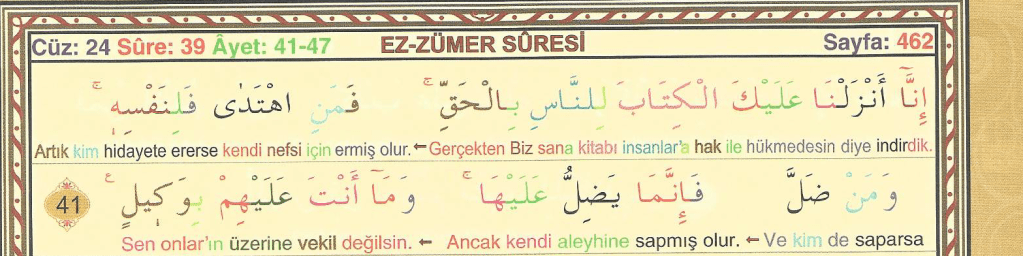 Cüz: 24 Sûre: 39 Âyet: 41-47 EZ-ZÜMER SÛRESİ Sayfa: 462
اِنَّٓا اَنْزَلْنَا عَلَيْكَ الْكِتَابَ لِلنَّاسِ بِالْحَقِّۚ فَمَنِ اهْتَدٰى فَلِنَفْسِهٖۚ
Artık kim hidayete ererse kendi nefsi için ermiş olur.←Gerçekten Biz sana kitabı insanlar'a hak ile hükmedesin diye indirdik.
وَمَنْ ضَلَّ فَاِنَّمَا يَضِلُّ عَلَيْهَاۚ وَمَٓا اَنْتَ عَلَيْهِمْ بِوَكٖيلٍࣖ 41
Sen onlar'ın üzerine vekil değilsin. ← Ancak kendi aleyhine sapmış olur. ←Ve kim de saparsa